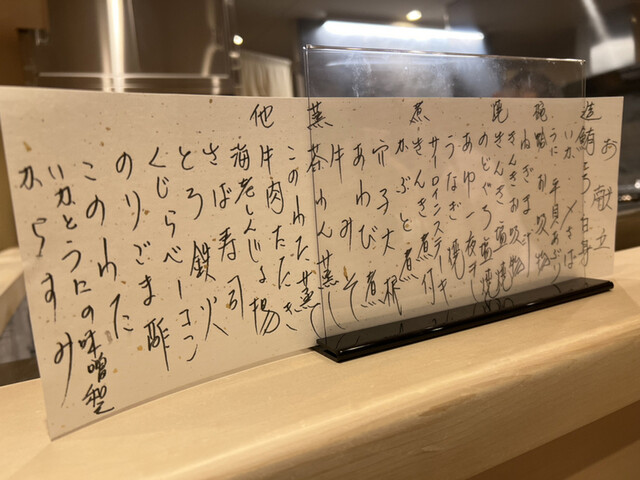 お献立
造 鮪とろ 白身
いか 〆さば
うに 平貝あぶり
碗 蛤 お吸物
ねぎま汁
焼 きんき塩焼
のどぐろ塩焼
あゆ一夜干
うなぎ
サーロインステーキ
煮 きんき煮付
かぶと煮
穴子大根
あわび煮
牛
蒸 茶わん蒸し
このわた
他 牛肉たたき
海老しんじょう揚
さば寿司
とろ鉄火
くじらベーコン
のりごま酢
このわた
いかとうにの味噌和
からすみ